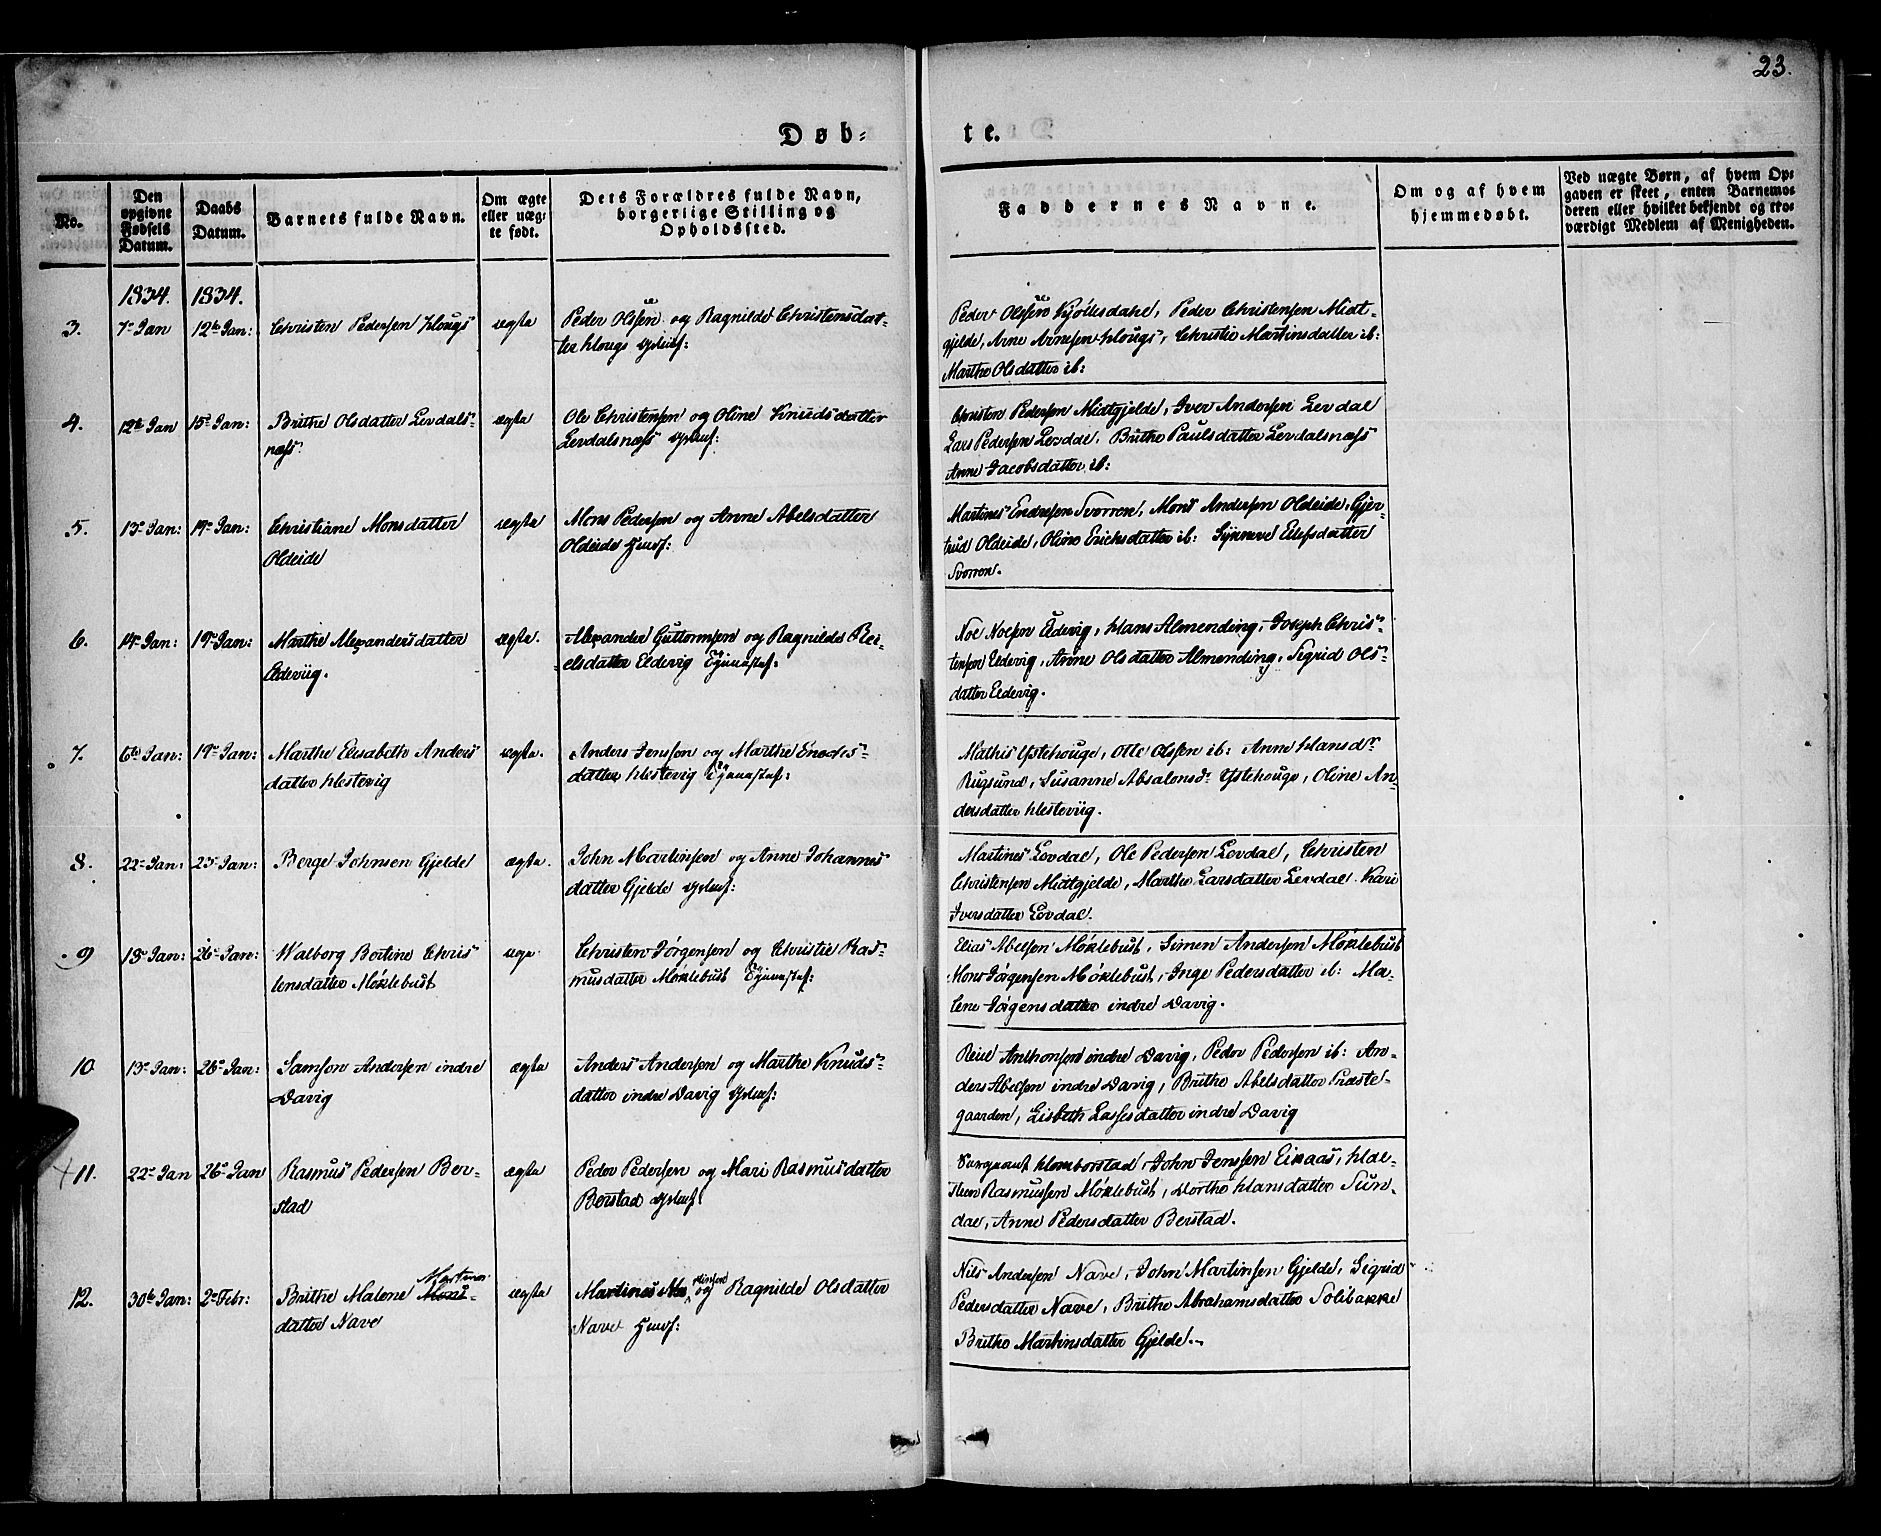 23.
Døb-
te.
No.
Den opgivne Fødsels Datum.
Daabs Datum.
Barnets fulde Navn.
Om ægte eller uægte født.
Dets Forældres fulde Navn, borgerlige Stilling og Opholdssted.
Faddernes Navne.
Om og af hvem hjemmedøbt.
Ved uægte Børn, af hvem Opgaven er skeet, enten Barnemoderen eller hvilket bekjendt og troværdigt Medlem af Menigheden.
1834. 1834.
3. 7de Jan 12te Jan: Christen Pedersen Hougs ægte
Peder Olssen og Ragnilde Christensdat-
ter Hougs
Peder Olssen Kjöllesdahl, Peder Christensen Midt-
gjelde, Arne Arnesen Hougs, Christie Martinsdatter ib:
Marthe Olsdatter ib:
4. 12te Jan 15de Jan: Brithe Olsdatter Levdals-
næss. ægte
Ole Christensen og Oline Knudsdatter
Levdalsnæss
Christen Pedersen Midtgjelde, Iver Andersen Levdal
Lars Pedersen Levdal, Brithe Paulsdatter Levdalsnæss
Anne Jacobsdatter ib:
5. 13de Jan: 19de Jan: Christiane Monsdatter
Oldeide ægte
Mons Pedersen og Anne Abelsdatter
Oldeide Huusf:
Martines Endresen Svorren, Mons Andersen Oldeide, Gjer-
trud Oldeide, Oline Erichsdatter ib: Synneve Elefsdatter
Svorren.
6. 14de Jan: 19de Jan: Marthe Alexandersdatter
Eldeviig. ægte.
Alexander Guttormsen og Ragnilde Rei-
elsdatter Eldevig
Noe Noesen Eldevig, Hans Almending, Joseph Chris-
tensen Eldevig, Anne Olsdatter Almending, Sigrid Ols-
datter Eldevig.
7. 6te Jan: 19de Jan: Marthe Elisabeth Anders
datter Hestevig ægte.
Anders Jenssen og Marthe Enochs-
datter Hestevig
Mathis Ystehouge, Otte Olssen ib: Anne Hansdr
Rugsund, Susanne Absalonsdr Ystehouge, Oline An-
dersdatter Hesteviig.
8. 22de Jan: 25de Jan: Berge Johnsen Gjelde ægte.
John Martinsen og Anne Johannes
datter Gjelde
Martines Levdal, Ole Pedersen Levdal, Christen
Christensen Midtgjelde, Marthe Larsdatter Levdal. Kari
Iversdatter Levdal.
9 18de Jan: 26de Jan: Walborg Bertine Chris
tensdatter Möklebust
Christen Jörgensen og Christie Ras-
musdatter Möklebust
Elias Abelsen Möklebust, Simen Andersen Möklebust
Mons Jörgensen Möklebust, Inge Pedersdatter ib: Ma-
lene Jörgensdatter indre Davig.
10 13de Jan: 26de Jan: Samson Andersen indre
Davig ægte
Anders Andersen og Marthe Knuds-
datter indre Davig
Reiel Anthonsen indre Davig, Peder Pedersen ib: An-
ders Abelsen indre Davig, Brithe Abelsdatter Præste-
gaarden, Lisbeth Lassesdatter indre Davig
11. 22de Jan 26de Jan Rasmus Pedersen Ber-
stad ægte
Peder Pedersen og Mari Rasmusdatter
Berstad
Sergeant Homborstad, John Jenssen Einaas, Hal-
Rasmussen Möklebust, Dorthe Hansdatter Sün-
dal, Anne Pedersdatter Berstad.
12. 30te Jan: 2de Febr: Brithe Malene Mons- Martines
datter Nave ægte
Martines Mar tinsen og Ragnilde Olsdatter
Nave Huusf:
Nils Andersen Nave, John Martinsen Gjelde, Sigrid
Pedersdatter Nave, Brithe Abrahamsdatter Solibakke
Brithe Martinsdatter Gjelde.